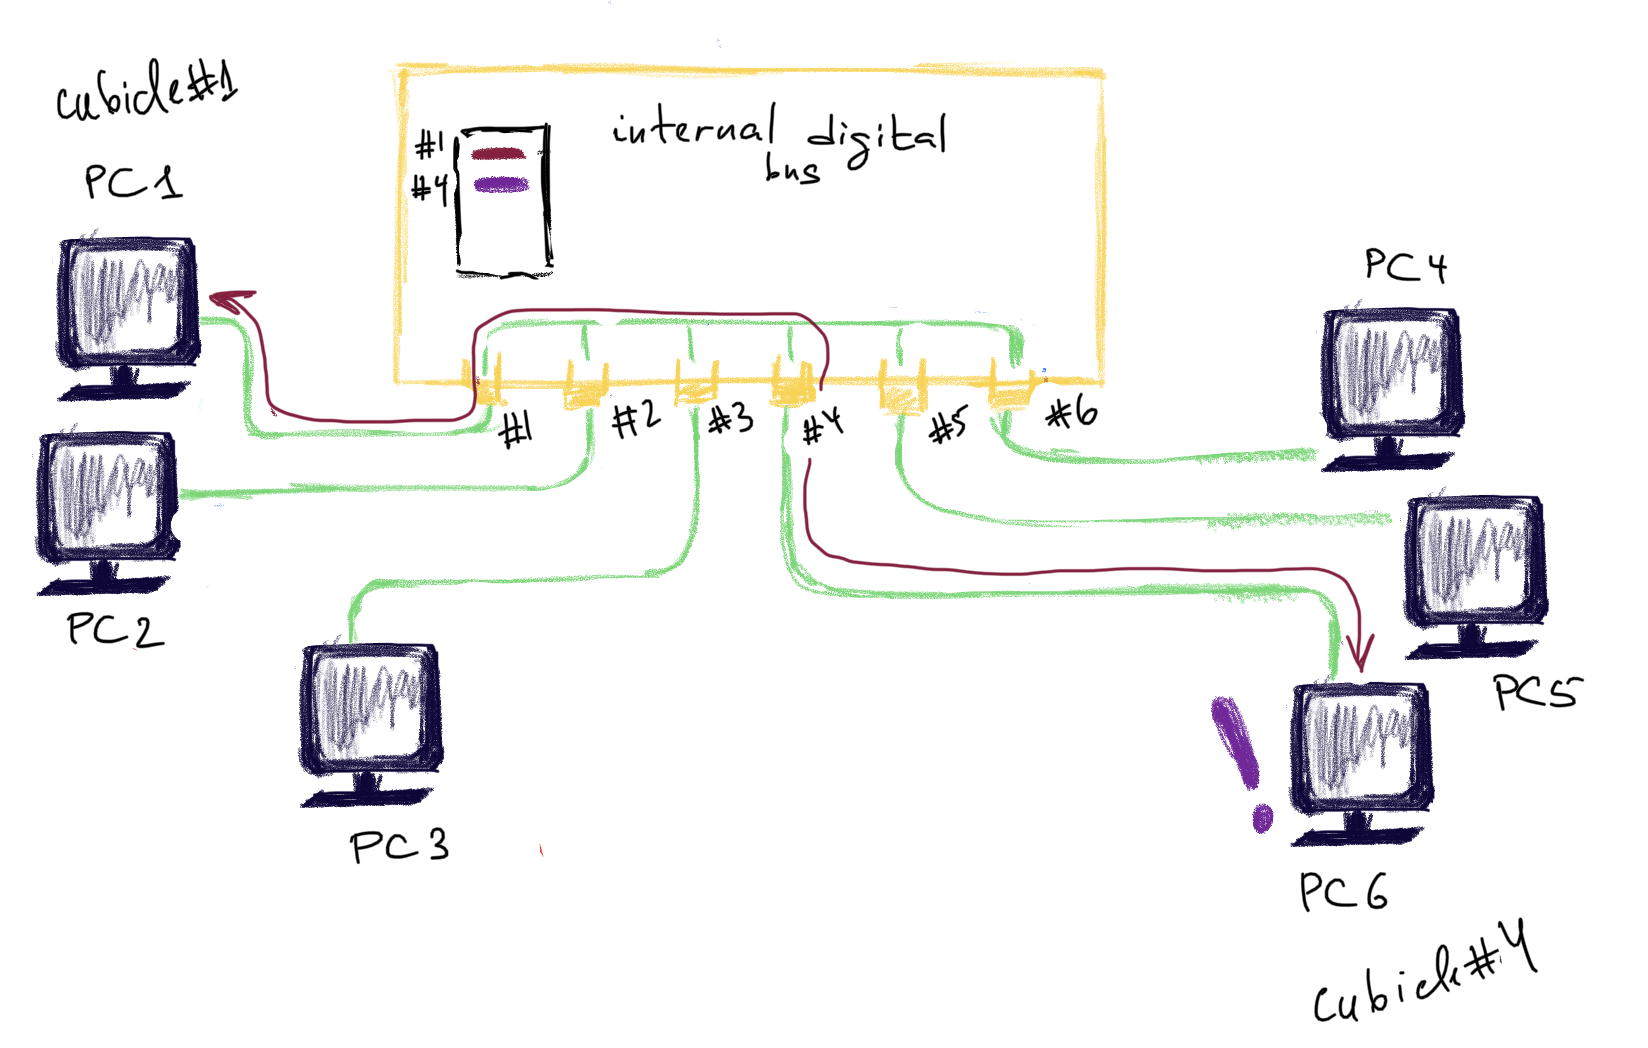 cubicle#1
PC1
internal digital
bus
#1
#4
PC4
#1
#2
#3
#4
#5
#6
PC2
PC5
PC3
!
PC6
cubicle#4